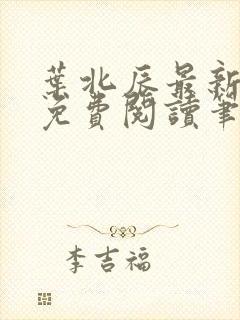 葉北辰最新
免費閱讀筆
李吉福